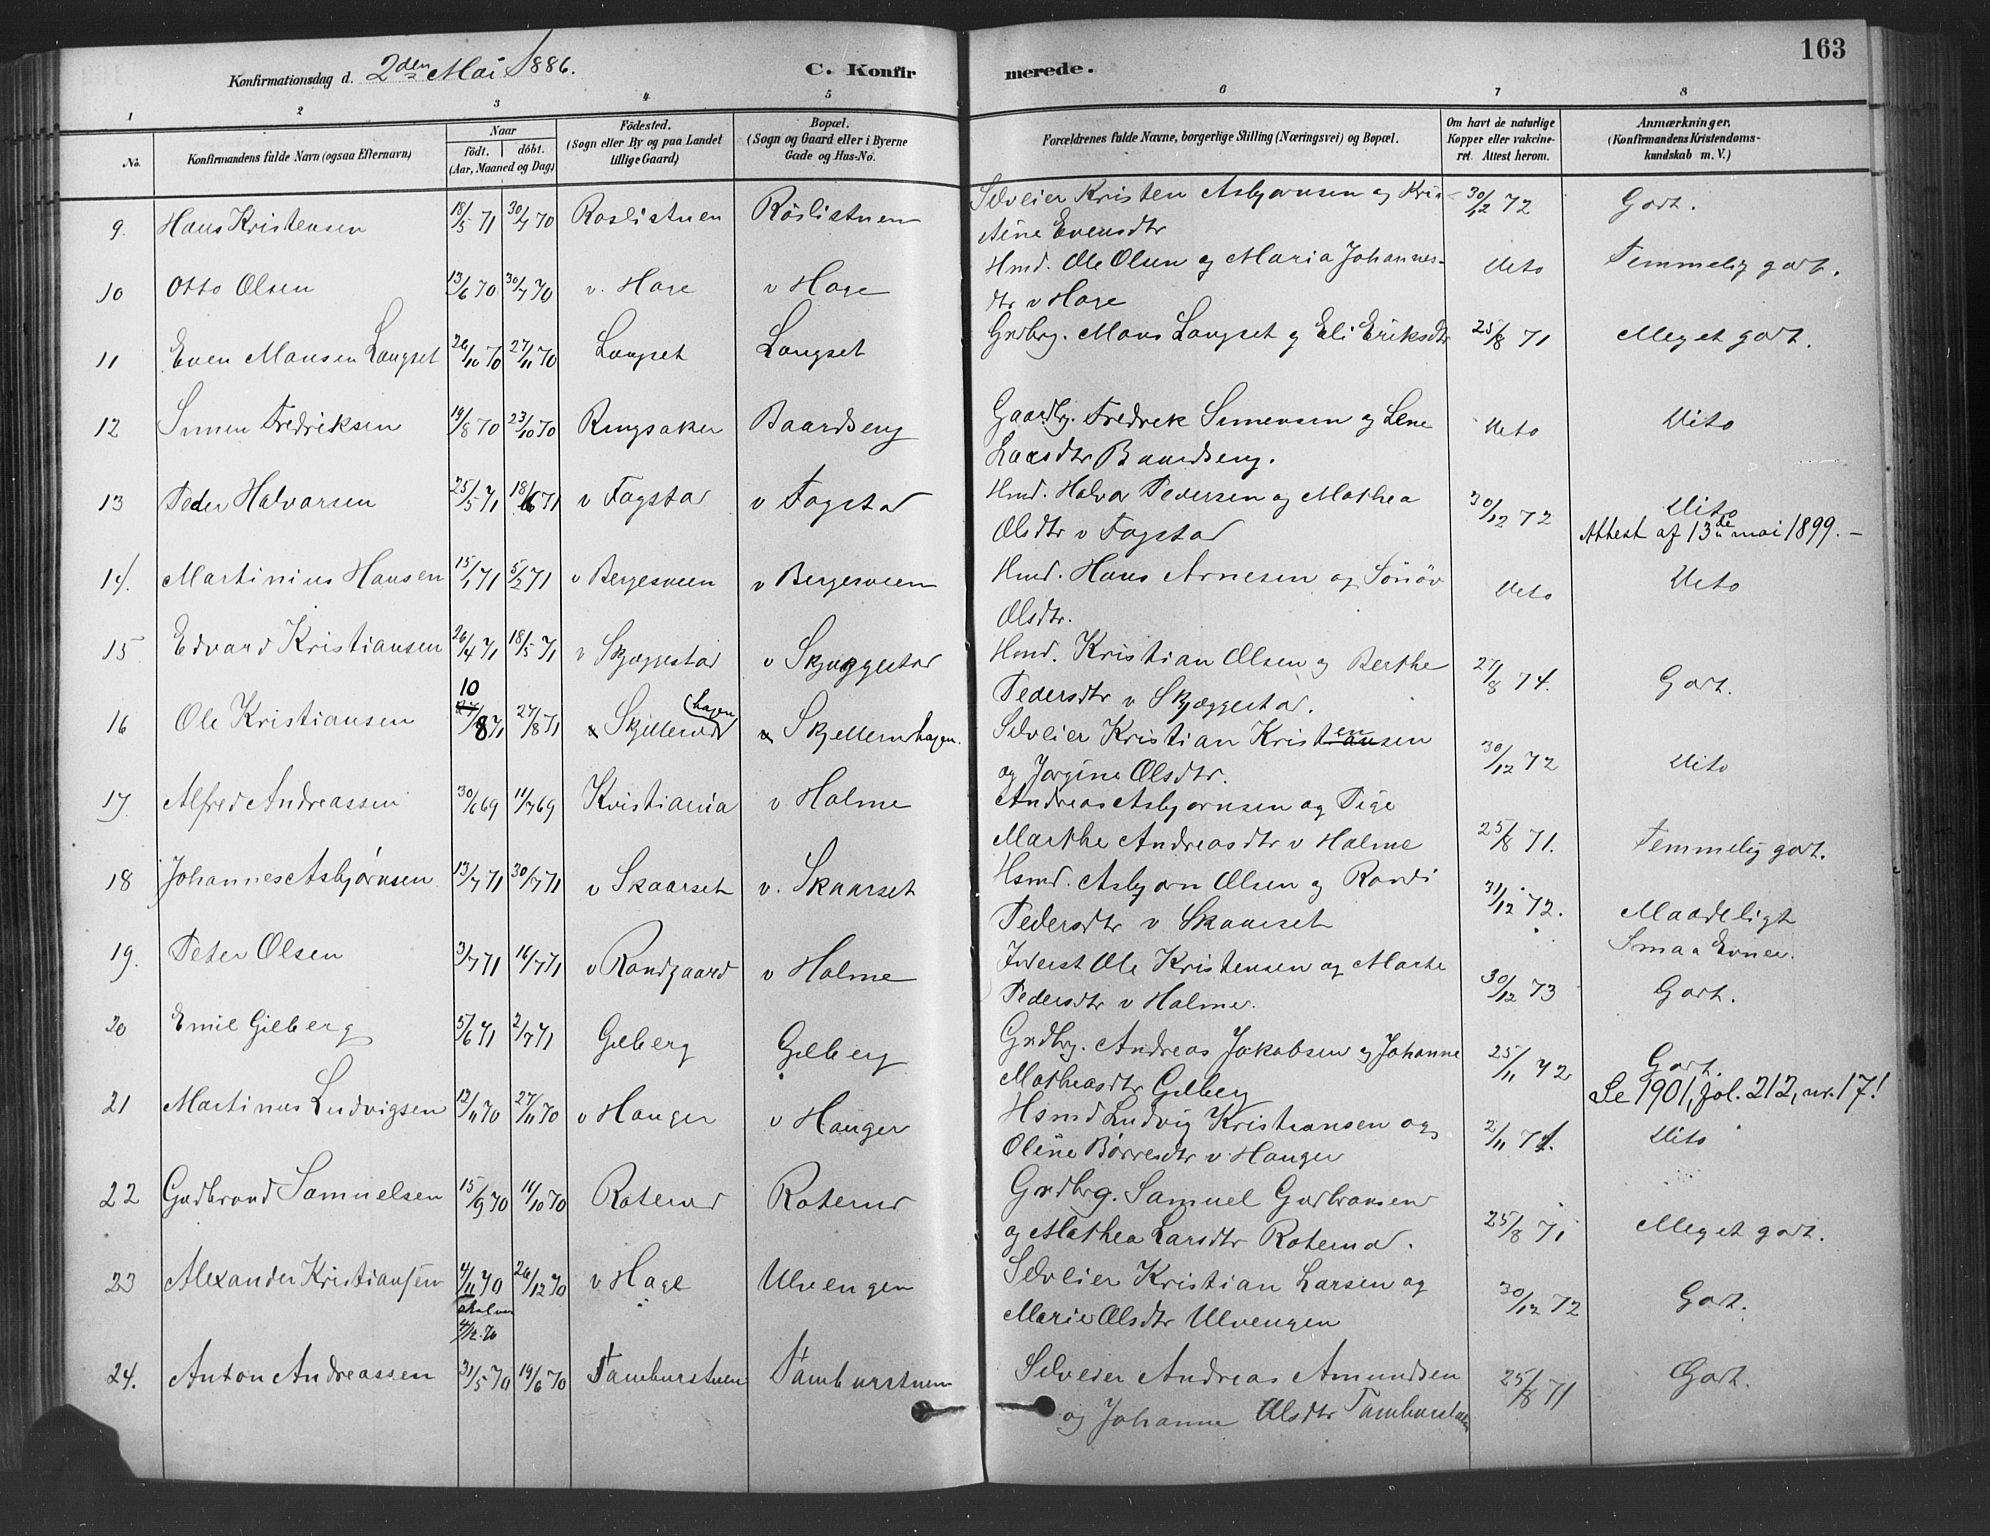 163
Konfirmationsdag d. 2den Mai 1886. C. Konfirmerede.
1 2 3 4 5 6 7 8
No. Konfirmandens fulde Navn (ogsaa Efternavn) Naar født. døbt. (Aar, Maaned og Dag) Födested. (Sogn eller By og paa Landet tillige Gaard) Bopæl. (Sogn og Gaard eller i Byerne Gade og Hus-No. Forældrenes fulde Navne, borgerlige Stilling (Næringsvei) og Bopæl. Om havt de naturlige Kopper eller vakcineret. Attest herom. Anmærkninger. (Konfirmandens Kristendomskundskab m. V.)
9. Hans Kristensen 18/5 71 30/7 70 Roslistuen Röslistuen Selveier Kristen Asbjornsen og Kri- 30/12 72 Godt.
stine Evensdtr
10 Otto Olsen 13/6 70 30/7 70 v. Hage v Hage Hmd. Ole Olsen og Maria Johannes- Dito Temmelig godt.
dtr v Hage
11 Even Monsen Langset 26/10 70 27/11 70 Langset Langset Grdbrg. Mons Langset og Eli Eriksdtr 25/8 71 Meget godt.
12 Simen Fredriksen 19/8 70 23/10 70 Ringsaker Baardseng Gaardbrg. Fredrik Simensen og Lene Dito Dito
Larsdtr Baardseng.
13 Peder Halvorsen 25/5 71 18/6 71 v Fagstad v Fagstad Hmd. Halvor Pedersen og Mathea 30/12 72 Dito
Olsdtr v Fagstad Attest af 13de mai 1899. –
14. Martinius Hansen 15/1 71 5/2 71 v Bergesveen v Bergesveen Hmd. Hans Arnesen og Sönöv Dito Dito
Olsdtr.
15 Edvard Kristiansen 26/4 71 18/5 71 v Skjæggestad v Skjæggestad Hmd. Kristian Olsen og Berthe 27/8 74. Godt.
Pedersdtr v Skjæggestad.
16 Ole Kristiansen 10/8 71 27/8 71 Skjellerudhagen Skjellerudhagen. Selveier Kristian Kristensen 30/12 72 Dito
og Jørgine Olsdtr.
17. Alfred Andreassen 30/6 69 11/7 69 Kristiania v Holme Andreas Asbjørnsen og Pige
Marthe Andreasdtr v Holme 25/8 71. Temmelig godt.
18 Johannes Asbjørnsen 13/7 71 30/7 71 v Skaarset v. Skaarset Hsmd. Asbjorn Olsen og Randi 31/12 72. Maadeligt
Pedersdtr v Skaarset Smaa Evner.
19. Peter Olsen 3/7 71 16/7 71 v Randgaard v Holme Inderst Ole Kristensen og Marte 30/12 73 Godt.
Pedersdtr v Holme.
20 Emil Gilberg 5/6 71 2/7 71 Gilberg Gilberg Grdbrg. Andreas Jakobsen og Johanne 25/11 72 Godt.
Matheasdtr Gilberg Se 1901, fol. 212, nr. 17!
21 Martinus Ludvigsen 12/11 70 27/11 70 v Hanger v Hanger Hsmd Ludvig Kristiansen og 2/11 71. Dito
Oline Børresdtr v Hanger
22 Gudbrand Samuelsen 15/9 70 11/10 70 Roterud Roterud Grdbrg. Samuel Gudbransen
og Mathea Larsdtr Roterud. 25/8 71 Meget godt.
23 Alexander Kristiansen 4/11 70 26/12 70 v Hage Ulvengen Selveier Kristian Larsen og 30/12 72 Godt.
skal være 4/12 70 Marie Olsdtr Ulvengen
24. Anton Andreassen 31/5 70 19/6 70 Tamburstuen Tamburstuen Selveier Andreas Amundsen 25/8 71 Godt.
og Johanne Olsdtr Tamburstuen